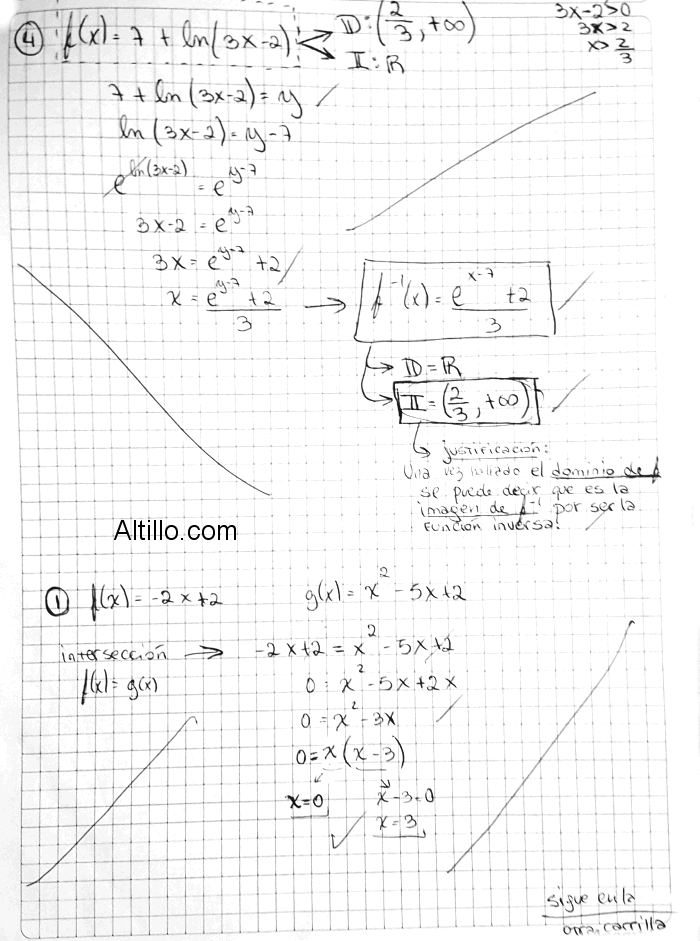 ④ f(x) = 7 + ln(3x-2) → D: (2/3, +∞)
→ I: R
3x-2>0
3x>2
x>2/3
7 + ln(3x-2) = y
ln(3x-2) = y-7
e^ln(3x-2) = e^y-7
3x-2 = e^y-7
3x = e^y-7 +2
x = (e^y-7 +2)/3 → f^-1(x) = (e^x-7 +2)/3
→ D = R
→ I = (2/3, +∞)
→ justificación:
Una vez hallado el dominio de f
se puede decir que es la
imagen de f^-1 por ser la
función inversa.
Altillo.com
① f(x) = -2x+2 g(x) = x^2 - 5x+2
intersección → -2x+2 = x^2 - 5x+2
f(x) = g(x) 0 = x^2 - 5x+2x
0 = x^2 - 3x
0 = x(x-3)
x=0 x-3=0
x=3
sigue en la
otra carrilla